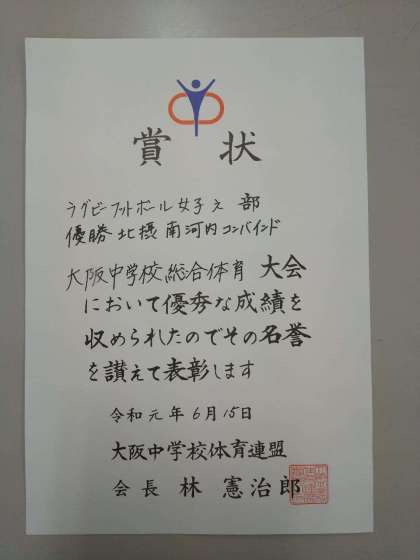 賞状
ラグビーフットボール女子の部
優勝 北摂南河内コンバインド
大阪中学校総合体育大会
において優秀な成績を
収められたのでその名誉
を讃えて表彰します
令和元年6月15日
大阪中学校体育連盟
会長 林 憲治郎